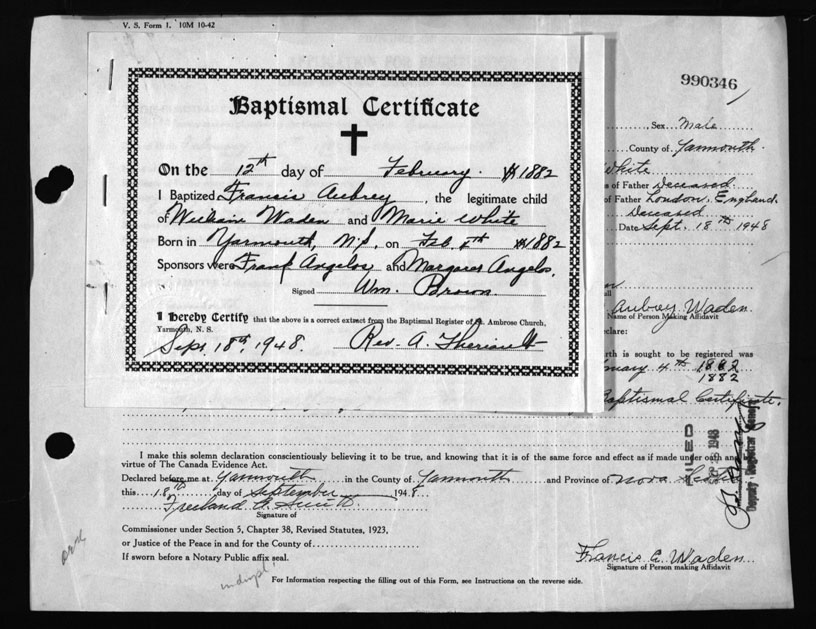 V. S. Form 1. 10M 10-42
990346
Baptismal Certificate
On the 12th day of February. 1882
I Baptized Francis Aubrey, the legitimate child
of William Waden and Marie White
Born in Yarmouth, N.S, on Feb 1882
Sponsors were Frank Angelos and Margaret Angelos.
Signed Wm. Brown.
I Hereby Certify that the above is a correct extract from the Baptismal Register of St. Ambrose Church,
Yarmouth, N. S.
Sept. 18th, 1948. Rev. A. Theriault
Sex Male
County of Yarmouth.
White
s of Father Deceased.
of Father London, England.
Deceased
Date Sept. 18th 1948
Aubrey Waden.
Name of Person Making Affidavit
clare:
rth is sought to be registered was
ruary 4th 1882
1882
Baptismal Certificate.
FILED
1948
Deputy Registrar General
I make this solemn declaration conscientiously believing it to be true, and knowing that it is of the same force and effect as if made under oath and by
virtue of The Canada Evidence Act.
Declared before me at Yarmouth in the County of Yarmouth and Province of Nova Scotia
this 18th day of September 1948
Freeland
Signature of
Commissioner under Section 5, Chapter 38, Revised Statutes, 1923,
or Justice of the Peace in and for the County of
If sworn before a Notary Public affix seal.
Francis A. Waden
Signature of Person making Affidavit
For Information respecting the filling out of this Form, see Instructions on the reverse side.